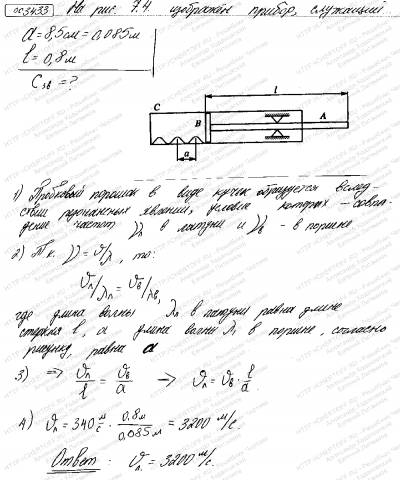 ос3433 На рис. 7.4 изображен прибор, служащий
a = 8,5см = 0,085м
l = 0,8м
Cзв = ?
l
C
B
A
a
1) Пробковый порошок в виде кучек образуется вслед-
ствии резонансных явлений, условие которых – совпа-
дение частот νл в латуни и νв - в поршне
2) Т.к. ν = υ/λ, то:
υл/λл = υв/λв,
где длина волны λл в латуни равна длине
стержня l, а длина волны λ в поршне, согласно
рисунку, равна a
3) ⇒ υл/l = υв/a → υл = υв · l/a
4) υл = 340 м/с · 0,8м/0,085м = 3200 м/с.
Ответ: υл = 3200 м/с.